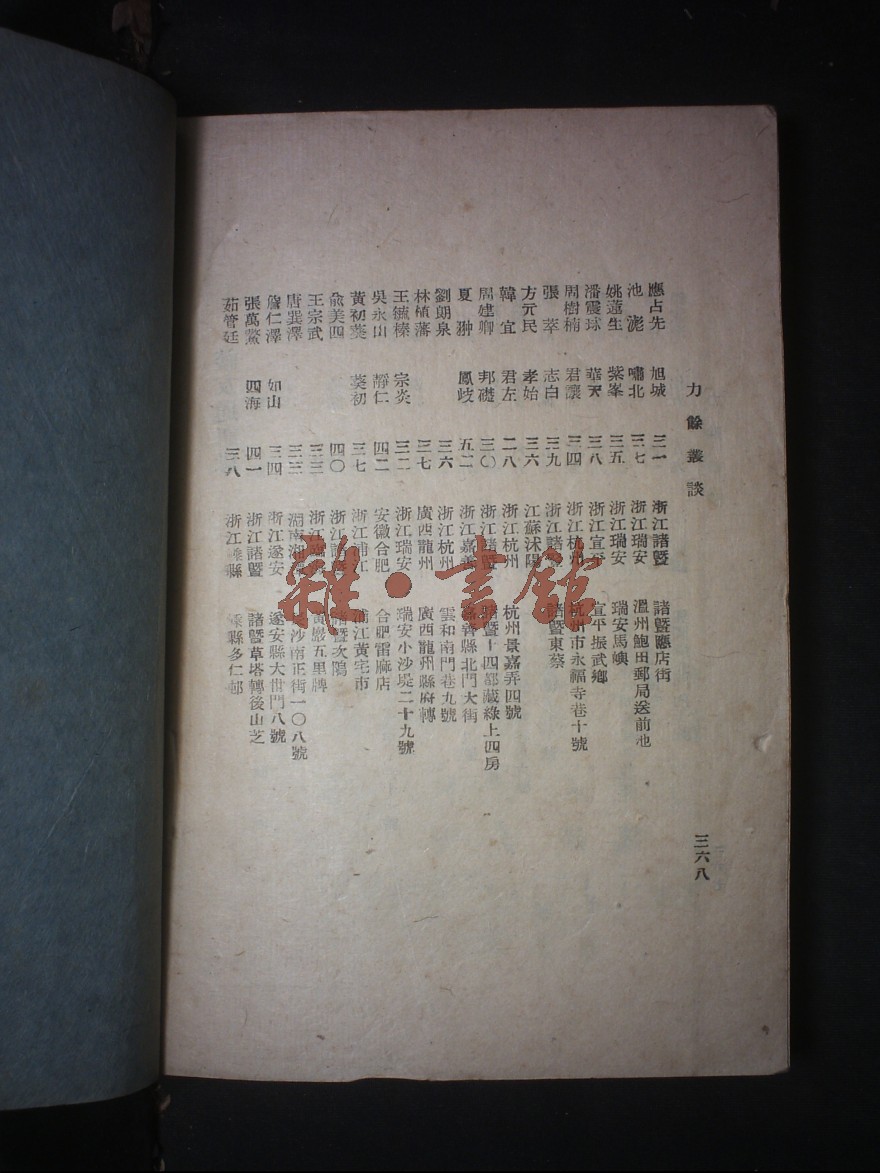 力餘叢談
三六八
應占先 旭城 三一 浙江諸暨 諸暨應店街
池 嘯北 三七 浙江瑞安 溫州鮑田郵局送前池
姚蘧生 紫峯 三五 浙江瑞安 瑞安馬嶼
潘震球 華天 三八 浙江宣平 宣平振武鄉
周樹楠 君讓 三四 浙江杭州 杭州市永福寺巷十號
張萃 志白 三九 浙江諸暨 諸暨東蔡
方元民 孝始 三六 江蘇沭陽
韓宜 君左 二八 浙江杭州 杭州景嘉弄四號
周建卿 邦礎 三〇 浙江諸暨 諸暨十四都藏綠上四房
夏翀 鳳岐 五二 浙江嘉善 嘉善縣北門大街
劉朗泉 三六 浙江杭州 雲和南門巷九號
林植藩 三七 廣西龍州 廣西龍州縣府轉
王毓榛 宗炎 三二 浙江瑞安 瑞安小沙堤二十九號
吳永山 靜仁 四二 安徽合肥 合肥雷麻店
黃初葵 葵初 三七 浙江浦江 浦江黃宅市
俞美四 四〇 浙江諸暨 諸暨次塢
王宗武 三三 浙江黃巖 黃巖五里牌
唐巽澤 三三 湖南湘潭 沙南正街一〇八號
詹仁澤 如山 三四 浙江遂安 遂安縣大世門八號
張萬鰲 四海 四一 浙江諸暨 諸暨草塔轉後山芝
茹管廷 三八 浙江嵊縣 嵊縣多仁邨
雜·書館